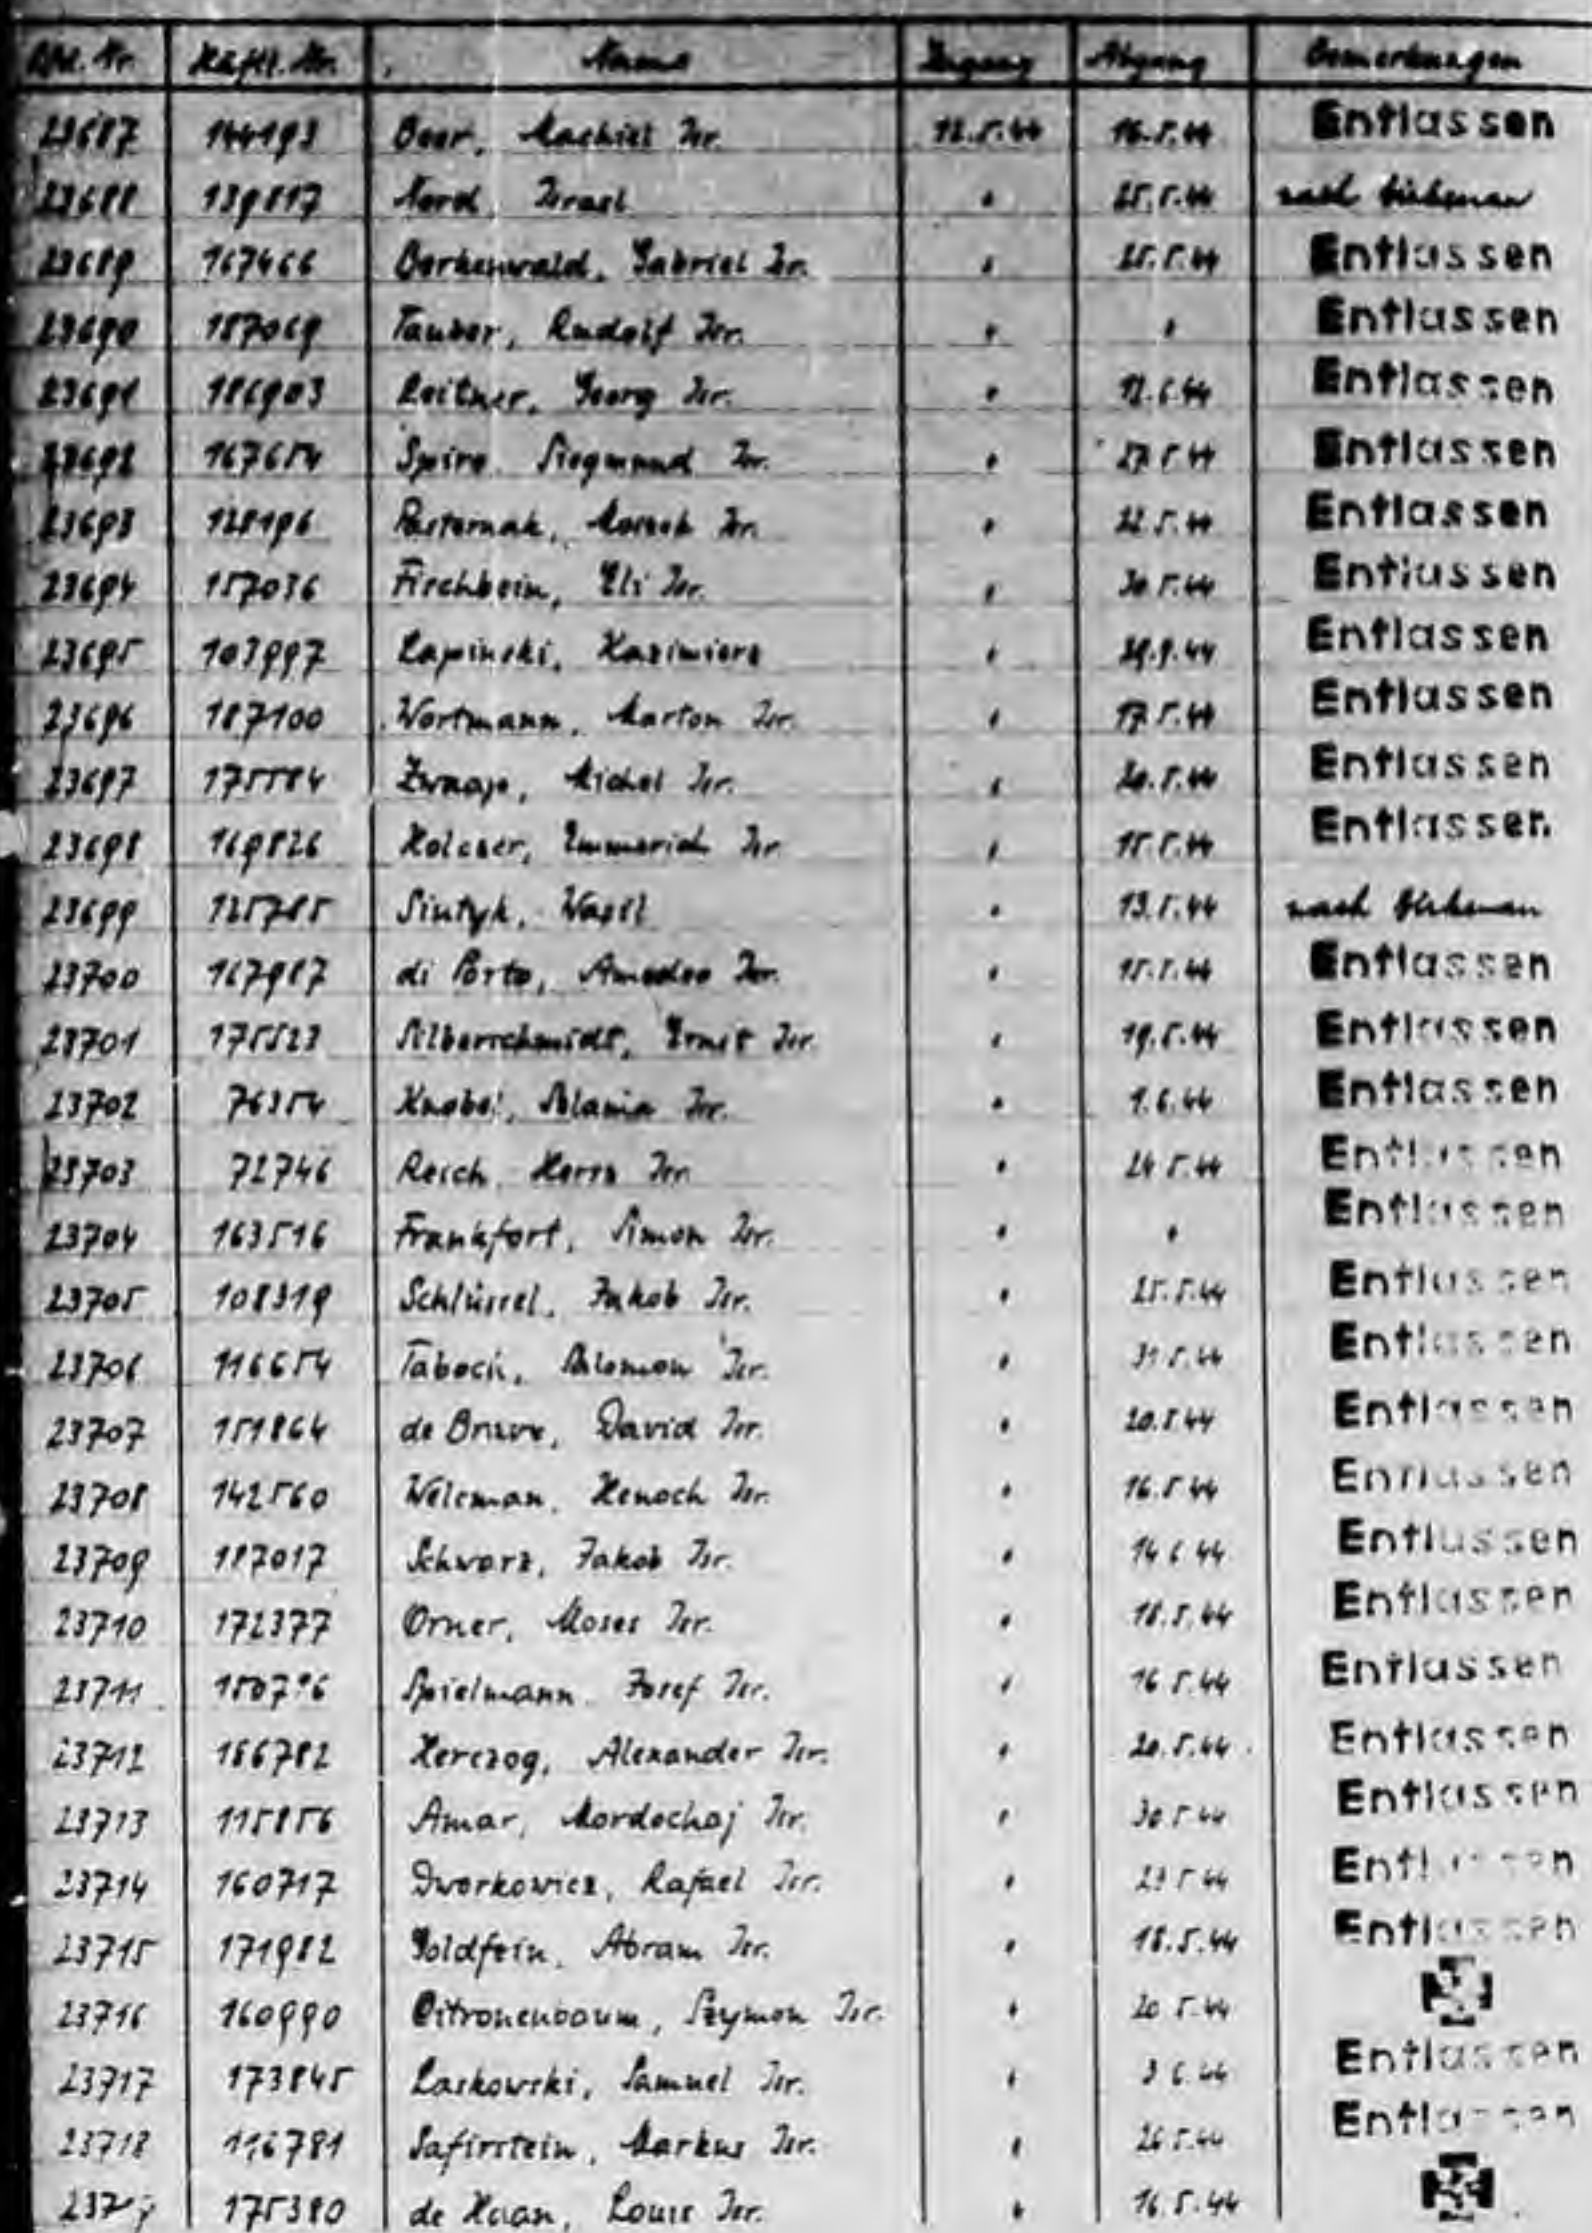 Lfd. Nr. Häftl. Nr. Name Zugang Abgang Bemerkungen
23687 144193 Beer, Machiel Isr. 12.5.44 16.5.44 Entlassen
23688 139817 Nord, Israel " 25.5.44 nach Birkenau
23689 167466 Berkenwald, Gabriel Isr. " 25.5.44 Entlassen
23690 187069 Tauber, Rudolf Isr. " " Entlassen
23691 186903 Leitner, Georg Isr. " 12.6.44 Entlassen
23692 167654 Spiro, Siegmund Isr. " 27.5.44 Entlassen
23693 128196 Pasternak, Moszek Isr. " 22.5.44 Entlassen
23694 157036 Fischbein, Eli Isr. " 30.5.44 Entlassen
23695 103997 Lapinski, Kazimierz " 29.9.44 Entlassen
23696 187100 Wortmann, Marton Isr. " 17.5.44 Entlassen
23697 175584 Zwaap, Michel Isr. " 20.5.44 Entlassen
23698 169826 Holczer, Emmerich Isr. " 15.5.44 Entlassen
23699 125785 Sintyk, Wasil " 13.5.44 nach Birkenau
23700 167987 di Porto, Amadeo Isr. " 15.5.44 Entlassen
23701 175523 Silberschmidt, Ernst Isr. " 19.5.44 Entlassen
23702 76354 Knobel, Isr. " 1.6.44 Entlassen
23703 72746 Reich, Hersz Isr. " 24.5.44 Entlassen
23704 163516 Frankfort, Simon Isr. " " Entlassen
23705 108319 Schlüssel, Jakob Isr. " 25.5.44 Entlassen
23706 116654 Taboch, Salomon Isr. " 31.5.44 Entlassen
23707 151864 de Brave, David Isr. " 20.5.44 Entlassen
23708 142560 Welcman, Henoch Isr. " 16.5.44 Entlassen
23709 187017 Schwarz, Jakob Isr. " 14.6.44 Entlassen
23710 172377 Orner, Moses Isr. " 18.5.44 Entlassen
23711 150796 Spielmann, Josef Isr. " 16.5.44 Entlassen
23712 186782 Herczog, Alexander Isr. " 20.5.44 Entlassen
23713 115856 Amar, Mordochaj Isr. " 30.5.44 Entlassen
23714 160717 Dworkowicz, Rafael Isr. " 23.5.44 Entlassen
23715 171982 Goldfein, Abram Isr. " 18.5.44 Entlassen
23716 160990 Citronenbaum, Szymon Isr. " 20.5.44
23717 173845 Laskowski, Samuel Isr. " 3.6.44 Entlassen
23718 116781 Safirstein, Markus Isr. " 26.5.44 Entlassen
23719 175380 de Haan, Louis Isr. " 16.5.44